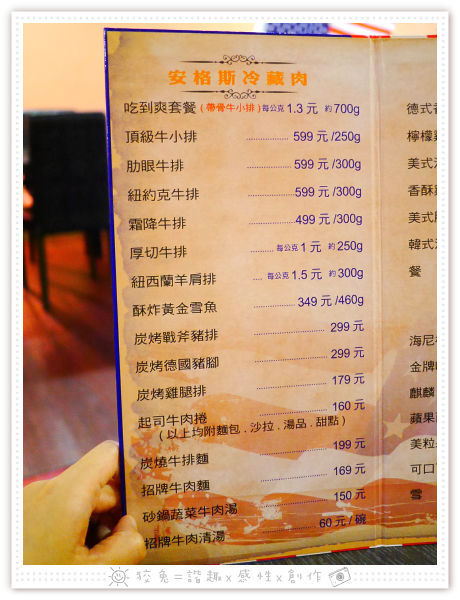 安格斯冷藏肉
吃到爽套餐(帶骨牛小排)每公克1.3元 約700g
頂級牛小排 ................ 599元/250g
肋眼牛排 ................ 599元/300g
紐約克牛排 ................ 599元/300g
霜降牛排 ................ 499元/300g
厚切牛排 ......... 每公克1元 約250g
紐西蘭羊肩排 .... 每公克1.5元 約300g
酥炸黃金雪魚 ................ 349元/460g
炭烤戰斧豬排 ................ 299元
炭烤德國豬腳 ................ 299元
炭烤雞腿排 ................ 179元
起司牛肉捲 ................ 160元
(以上均附麵包.沙拉.湯品.甜點)
炭燒牛排麵 ................ 199元
招牌牛肉麵 ................ 169元
砂鍋蔬菜牛肉湯 ................ 150元
招牌牛肉清湯 ................ 60元/碗
德式
檸檬
美式
香酥
美式
韓式
餐
海尼
金牌
麒麟
蘋果
美粒
可口
雪
狡兔=諧趣x感性x創作